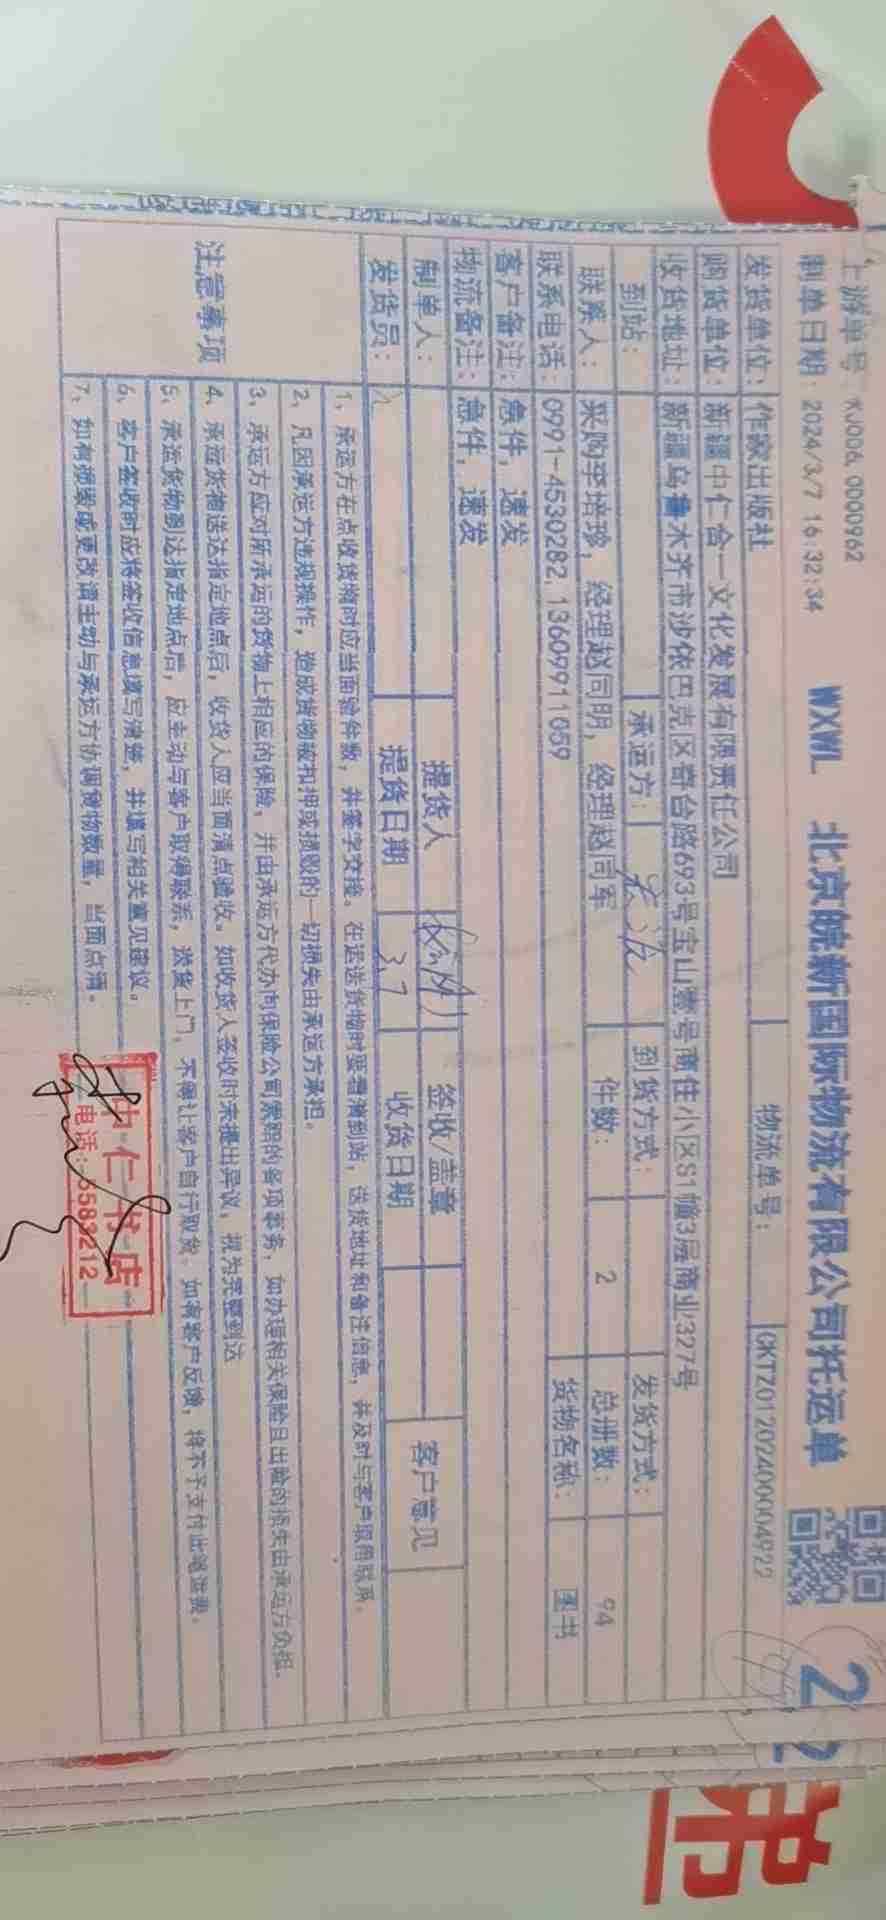 上游单号: KJ006, 0000962
制单日期: 2024/3/7 16:32:34
WXWL 北京皖新国际物流有限公司托运单
22
发货单位: 作家出版社 物流单号: CKTZ01202400004922
购货单位: 新疆中仁合一文化发展有限责任公司
收货地址: 新疆乌鲁木齐市沙依巴克区奇台路693号宝山壹号商住小区S1幢3层商业327号
到站: 承运方: 到货方式: 发货方式:
联系人: 采购李培珍, 经理赵同明, 经理赵同军 件数: 2 总册数: 94
联系电话: 0991-4530282, 13609911059 货物名称: 图书
客户备注: 急件, 速发
物流备注: 急件, 速发
制单人: 提货人 签收/盖章 客户意见
发货员: 提货日期 3.7 收货日期
注意事项
1、承运方在点收货物时应当面验件数, 并签字交接。在运送货物时要看清到站, 送货地址和备注信息, 并及时与客户取得联系。
2、凡因承运方违规操作, 造成货物被扣押或损毁的一切损失由承运方承担。
3、承运方应对所承运的货物上相应的保险, 并由承运方代办向保险公司索赔的各项事务, 如办理相关保险且出险的损失由承运方负担.
4、承运货物送达指定地点后, 收货人应当面清点验收。如收货人签收时未提出异议, 视为完整到达
5、承运货物到达指定地点后, 应主动与客户取得联系, 送货上门, 不得让客户自行取货. 如有客户反馈, 将不予支付此笔运费。
6、客户签收时应将签收信息填写清楚, 并填写相关意见建议。
7、如有损毁或更改请主动与承运方协调货物数量, 当面点清。
中仁书店
电话: 5583212
弟